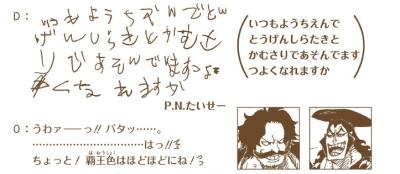 D： いつもようちえんでとう
げんしらたきとかむさ
りであそんでますつよ
くなれますか
いつもようちえんで
とうげんしらたきと
かむさりであそんでます
つよくなれますか
P.N.たいせー
O：うわァーーっ!! バタッ……。
…………………………はっ!!
はおうしょく
ちょっと! 覇王色はほどほどにね!